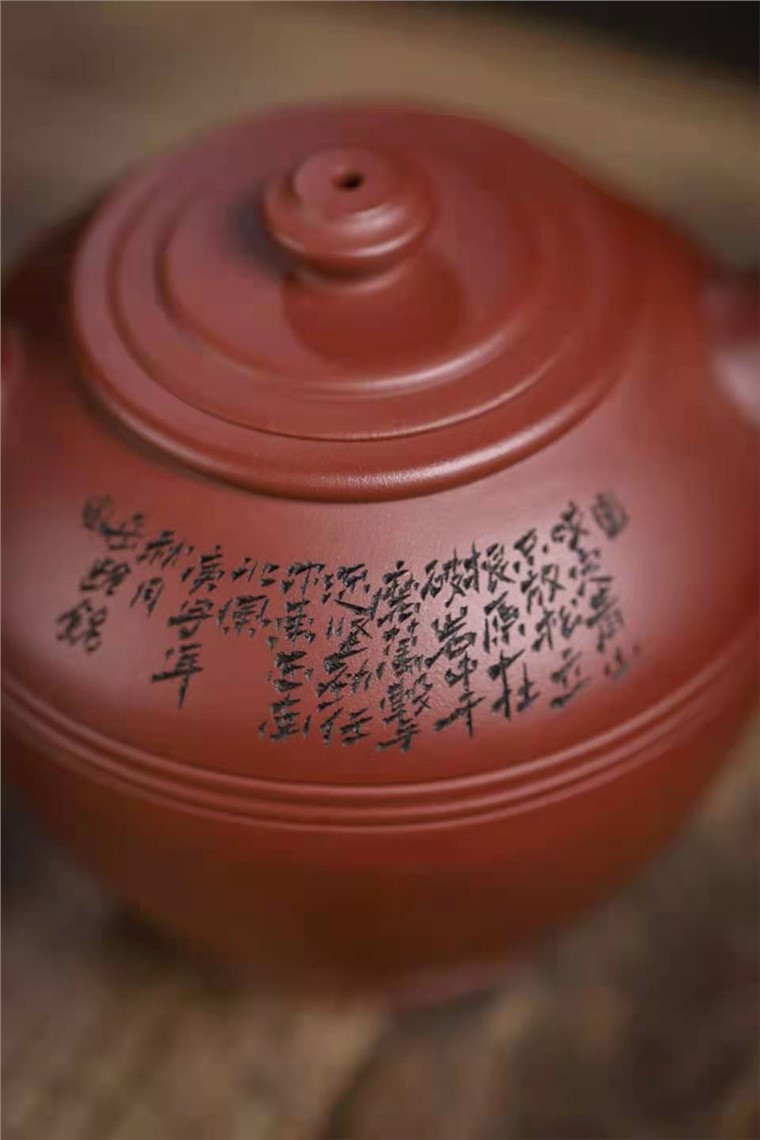 咬定青山
不放松立
根原在
破岩中千
磨萬擊
还坚劲任
尔東西南
北風
庚子年
秋月